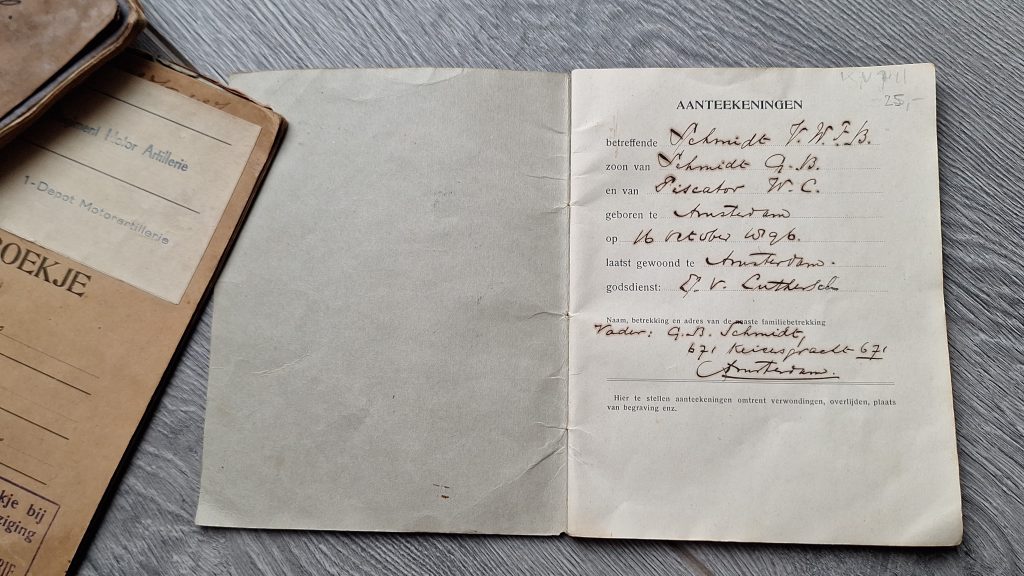 Motor Artillerie
1-Depot Motorartillerie
OEKJE
kje bij
ziging
25,-
AANTEEKENINGEN
betreffende Schmidt V. W. F. B.
zoon van Schmidt G. B.
en van Piscator W. C.
geboren te Amsterdam
op 16 october 1896.
laatst gewoond te Amsterdam.
godsdienst: Ev. Luthersch
Naam, betrekking en adres van de naaste familiebetrekking
Vader: G. B. Schmidt,
671 Keizersgracht 671
Amsterdam.
Hier te stellen aanteekeningen omtrent verwondingen, overlijden, plaats
van begraving enz.